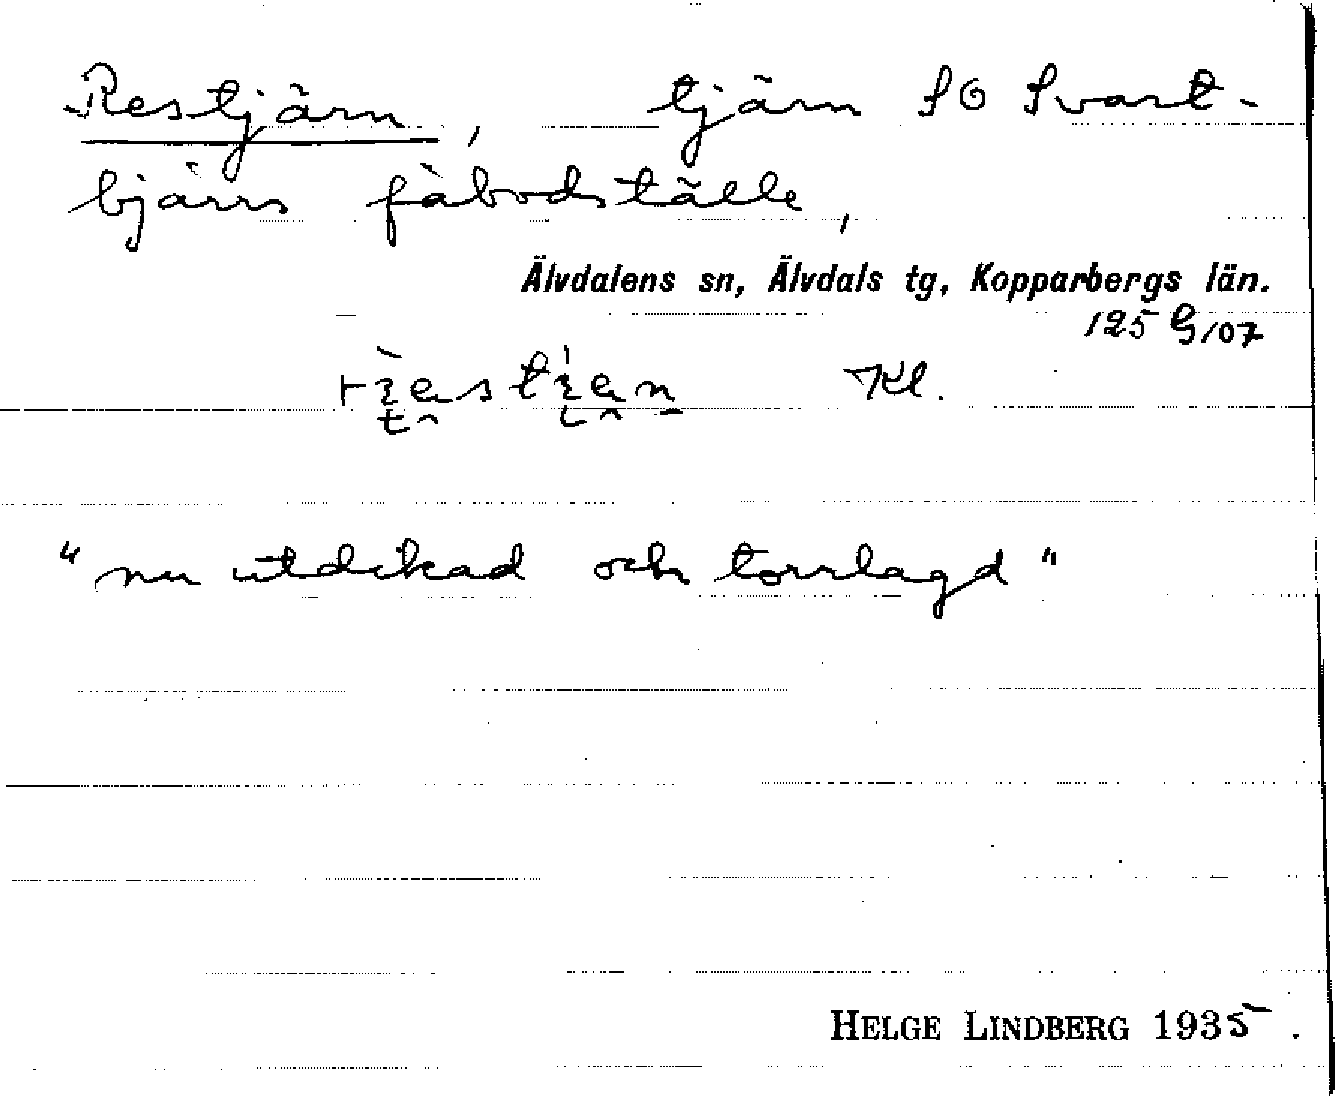 Restjärn, tjärn SO Svart-
bjärrs fäbodställe,
Älvdalens sn, Älvdals tg, Kopparbergs län.
125 G/07
Kl.
"nu utdikad och torrlagd"
HELGE LINDBERG 1935.